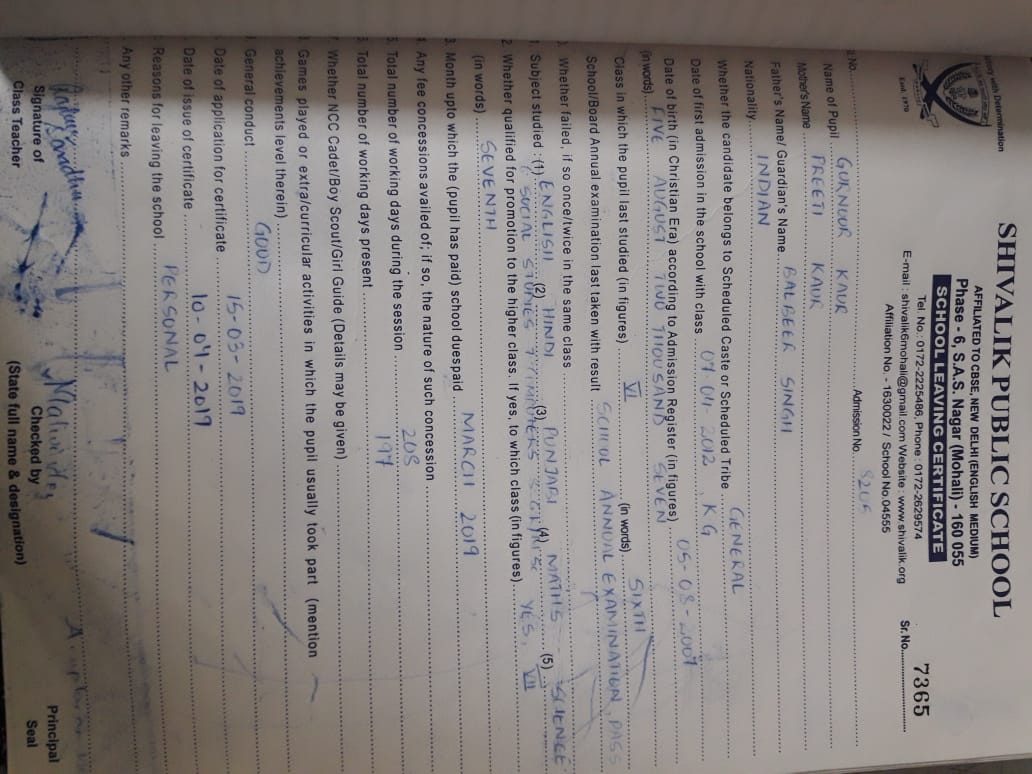 with Determination
Estd. 1970
SHIVALIK PUBLIC SCHOOL
AFFILIATED TO CBSE, NEW DELHI (ENGLISH MEDIUM)
Phase - 6, S.A.S. Nagar (Mohali) - 160 055
SCHOOL LEAVING CERTIFICATE
Tel. No. 0172-2225486, Phone : 0172-2629574
E-mail : shivalik6mohali@gmail.com Website : www.shivalik.org
Affiliation No. - 1630022 / School No. 04555
Sr. No. 7365
No. Admission No. 8206
Name of Pupil GURNOOR KAUR
Mother's Name PREETI KAUR
Father's Name/ Guardian's Name BALBEER SINGH
Nationality INDIAN
Whether the candidate belongs to Scheduled Caste or Scheduled Tribe GENERAL
Date of first admission in the school with class 07.04.2012, KG
Date of birth (in Christian Era) according to Admission Register (in figures) 05-08-2007
(in words) FIVE AUGUST TWO THOUSAND SEVEN
Class in which the pupil last studied (in figures) VI (in words) SIXTH
School/Board Annual examination last taken with result SCHOOL ANNUAL EXAMINATION, PASS
Whether failed, if so once/twice in the same class
Subject studied :(1) ENGLISH (2) HINDI (3) PUNJABI (4) MATHS (5) SCIENCE
6 SOCIAL STUDIES 7 COMPUTERS
2. Whether qualified for promotion to the higher class. If yes, to which class (in figures) YES, VII
(in words) SEVENTH
3. Month upto which the (pupil has paid) school duespaid MARCH 2019
4. Any fee concessions availed of; if so, the nature of such concession
5. Total number of working days during the session 208
Total number of working days present 197
Whether NCC Cadet/Boy Scout/Girl Guide (Details may be given)
Games played or extra/curricular activities in which the pupil usually took part (mention
achievements level therein)
General conduct GOOD
Date of application for certificate 15-03-2019
Date of issue of certificate 10-04-2019
Reasons for leaving the school PERSONAL
Any other remarks
Signature of
Class Teacher
Checked by
(State full name & designation)
Principal
Seal